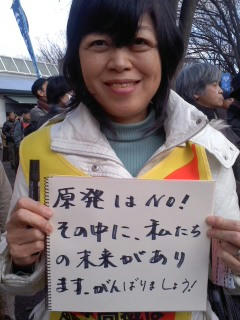 原発はNO!
その中に、私たち
の未来があり
ます。がんばりましょう!